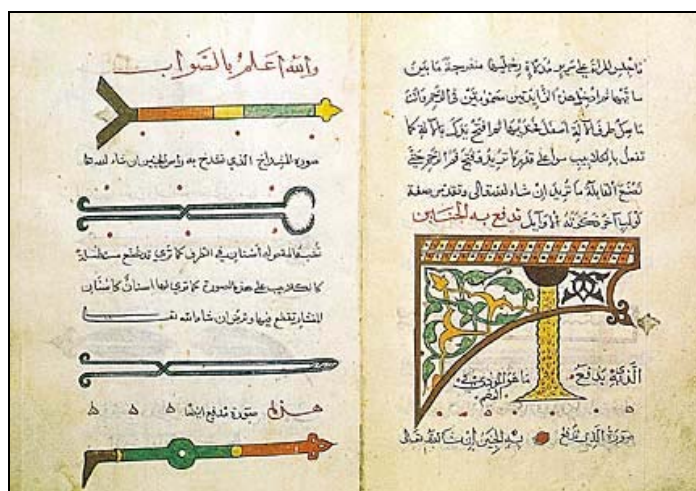 المراة على سرير مدلاة رجليها منفرجة ما بين
ساقيها ثم ادخل هذين الزايدتين في الرحم وانت
ماسك طرف الالة اسفل فخذيها ثم افتح يدك بالالة كما
تفعل بالكلاليب سوا على قدر ما تريد فتح فم الرحم حتى
تصنع القابلة ما تريد ان شاء الله تعالى صفة
لولب آخر ذكرته الاوايل تدفع به الجنين
الذي يدفع
صورة الذي تدفع به الجنين ان شاء الله تعالى
والله أعلم بالصواب
صورة المشداخ الذي تشدخ به راس الجنين ان شاء الله تعا
شبه المقص له أسنان في الطرف كما ترى وقد تصنع مستطيلة
كالكلاليب على هذه الصورة كما ترى لها اسنان كاسنان
المنشار يقطع بها ويرض ان شاء الله تعا
صورة مدفع ايضا